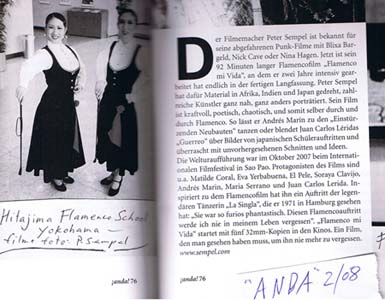 Hitajima Flamenco School
Yokohama —
filmefoto: P. Sempel
¡anda! 76
Der Filmemacher Peter Sempel ist bekannt für
seine abgefahrenen Punk-Filme mit Blixa Bar-
geld, Nick Cave oder Nina Hagen. Jetzt ist sein
92 Minuten langer Flamencofilm „Flamenco
mi Vida“, an dem er zwei Jahre intensiv gear-
beitet hat endlich in der fertigen Langfassung. Peter Sempel
hat dafür Material in Afrika, Indien und Japan gedreht, zahl-
reiche Künstler ganz nah, ganz anders porträtiert. Sein Film
ist kraftvoll, poetisch, chaotisch, und somit selber durch und
durch Flamenco. So lässt er Andrés Marín zu den „Einstür-
zenden Neubauten“ tanzen oder blendet Juan Carlos Leridas
„Guerreo“ über Bilder von japanischen Schüleraufritten und
überrascht mit unvorhergesehenen Schnitten und Ideen.
Die Welturaufführung war im Oktober 2007 beim Internati-
onalen Filmfestival in Sao Pao. Protagonisten des Films sind
u.a. Matilde Coral, Eva Yerbabuena, El Pele, Soraya Clavijo,
Andrés Marín, María Serrano und Juan Carlos Lerida. In-
spiriert zu dem Flamencofilm hat ihn ein Auftritt der legendä-
ren Tänzerin „La Singla“, die er 1971 in Hamburg gesehen
hat: „Sie war so furios phantastisch. Diesen Flamencoauftritt
werde ich nie in meinem Leben vergessen“. „Flamenco mi
Vida“ startet mit fünf 32mm-Kopien in den Kinos. Ein Film,
den man gesehen haben muss, um ihn nie mehr zu vergessen.
www.sempel.com
¡anda! 76
"ANDA" 2/08